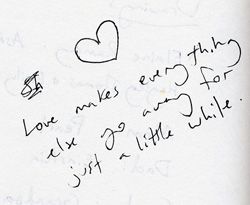 Love makes everything
else go away for
just a little while.